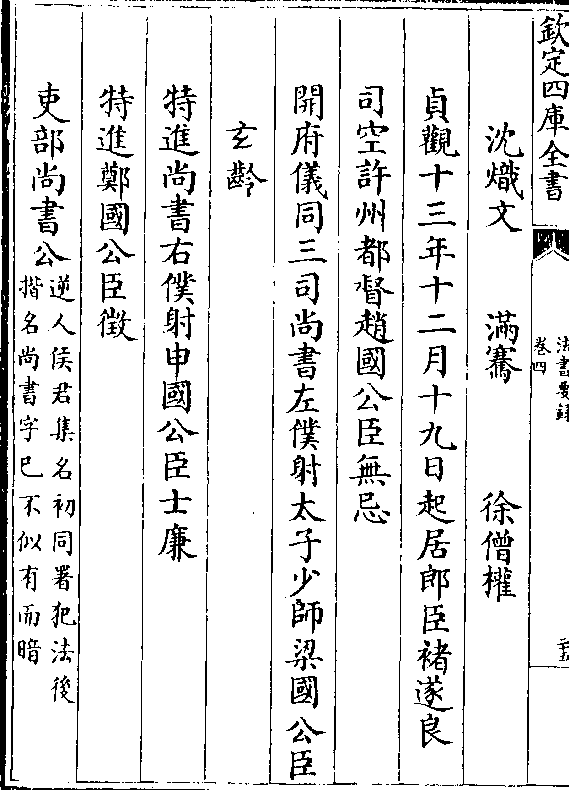 欽定四庫全書
法書要録
卷四
沈熾文　滿騫　徐僧權
貞觀十三年十二月十九日起居郎臣褚遂良
司空許州都督趙國公臣無忌
開府儀同三司尚書左僕射太子少師梁國公臣
玄齡
特進尚書右僕射申國公臣士廉
特進鄭國公臣徵
吏部尚書公
逆人侯君集名初同署犯法後
揩名尚書字已不似有而暗